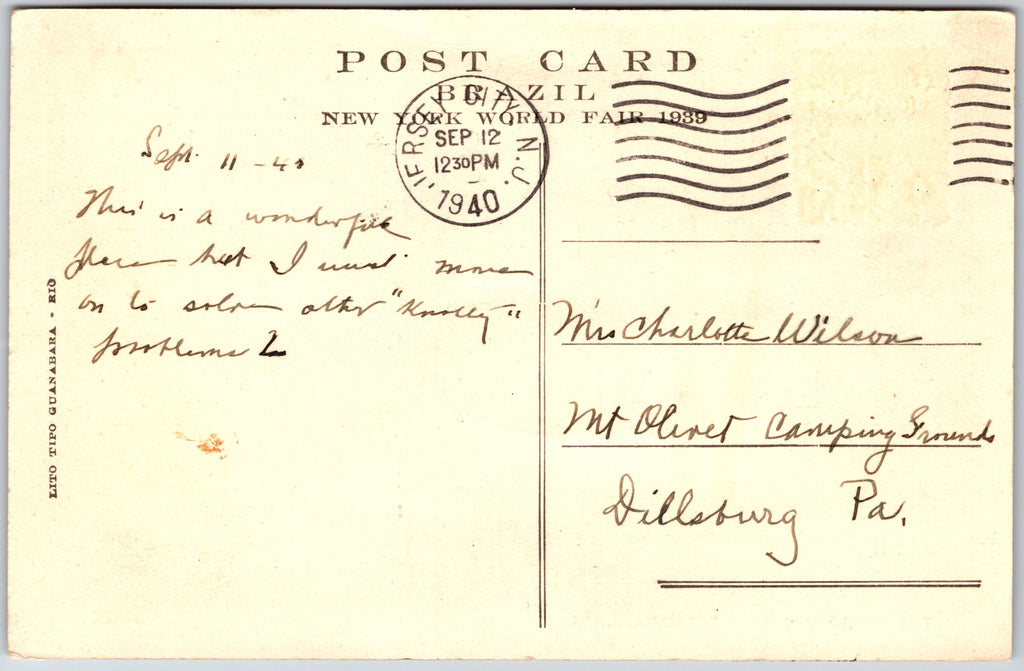 POST CARD
BRAZIL
NEW YORK WORLD FAIR 1939
JERSEY CITY, N.J.
SEP 12
12 30 PM
1940
Sept. 11 - 40
This is a wonderful
place but I must move
on to solve other "Knotty"
problems
LITO TIPO GUANABARA - RIO
Mrs Charlotte Wilson
Mt Olivet Camping Grounds
Dillsburg Pa.